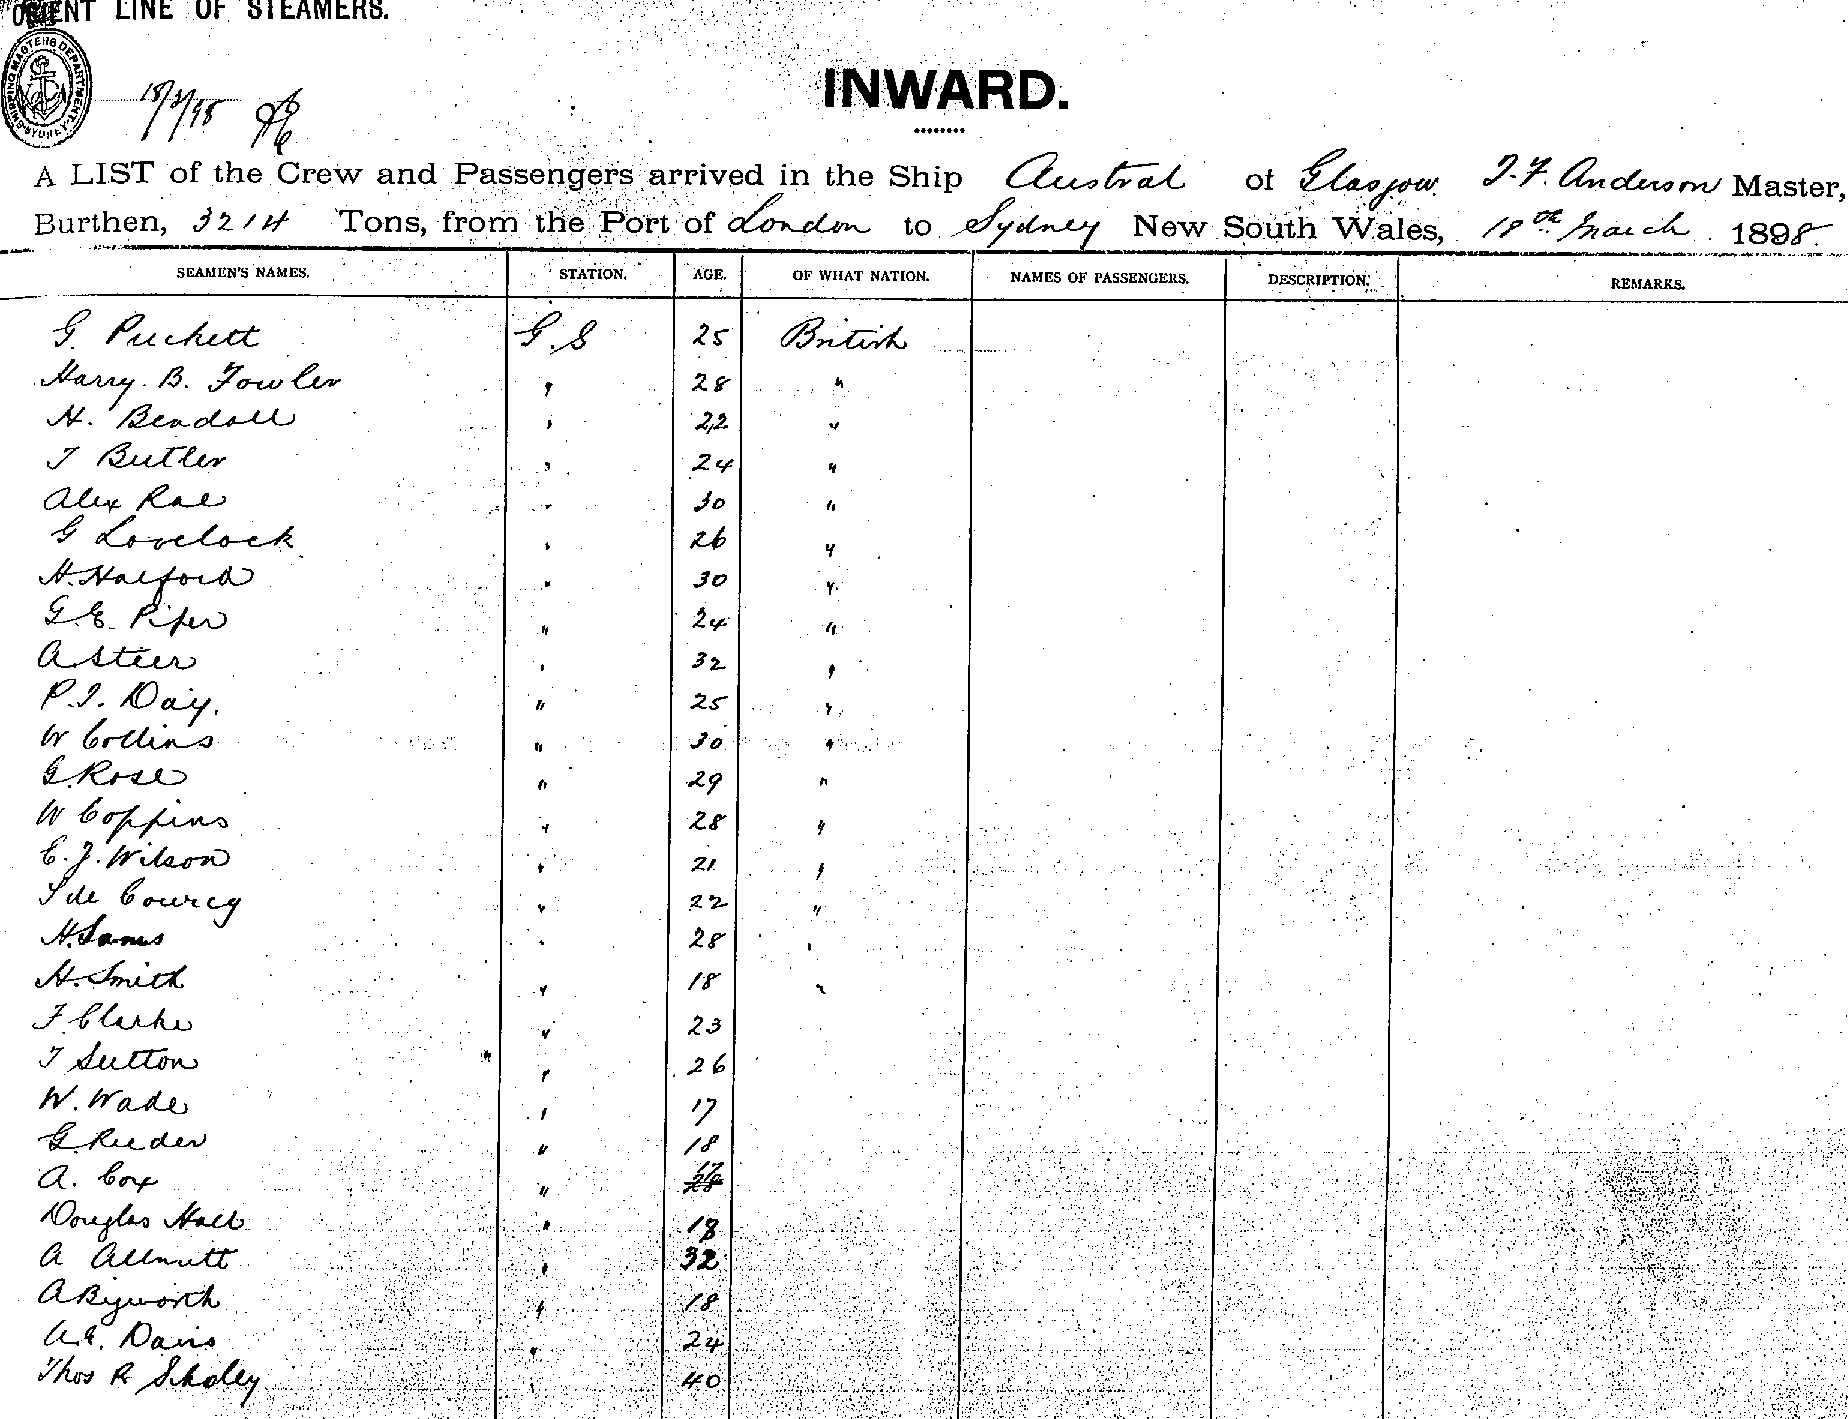 ORIENT LINE OF STEAMERS.
SHIPPING MASTERS DEPARTMENT SYDNEY
18/3/98
INWARD.
A LIST of the Crew and Passengers arrived in the Ship Austral of Glasgow. J. F. Anderson Master,
Burthen, 3214 Tons, from the Port of London to Sydney New South Wales, 18th March 1898.
SEAMEN'S NAMES. STATION. AGE. OF WHAT NATION. NAMES OF PASSENGERS. DESCRIPTION. REMARKS.
G. Puckett G.S 25 British
Harry. B. Fowler " 28 "
H. Bendall " 22 "
T Butler " 24 "
Alex Rae " 30 "
G Lovelock " 26 "
H. Halford " 30 "
G.E. Piper " 24 "
A. Steer " 32 "
P.J. Day. " 25 "
W Collins " 30 "
G. Rose " 29 "
W Coppins " 28 "
E. J. Wilson " 21 "
S de Courcy " 22 "
H. Sams " 28 "
H. Smith " 18 "
F. Clarke " 23
T Sutton " 26
W. Wade " 17
G. Reeder " 18
A. Cox "
Douglas Hall " 18
A Allnutt " 32
A Bigworth " 18
A.E. Davis " 24
Thos R Scholey " 40